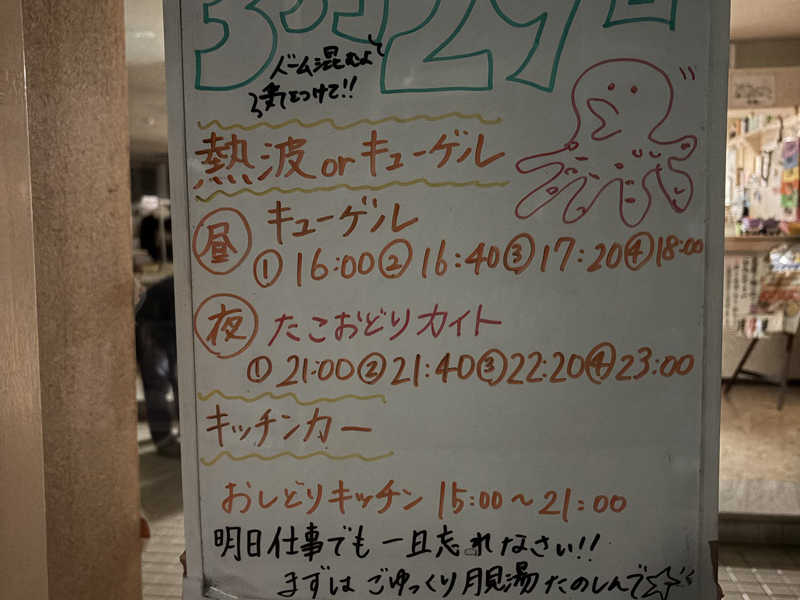 3月29日
ドーム混むよ
気をつけて!!
熱波orキューゲル
昼 キューゲル
①16:00②16:40③17:20④18:00
夜 たこおどりカイト
①21:00②21:40③22:20④23:00
キッチンカー
おしどりキッチン 15:00〜21:00
明日仕事でも一旦忘れなさい!!
まずは ごゆっくり月見湯たのしんで